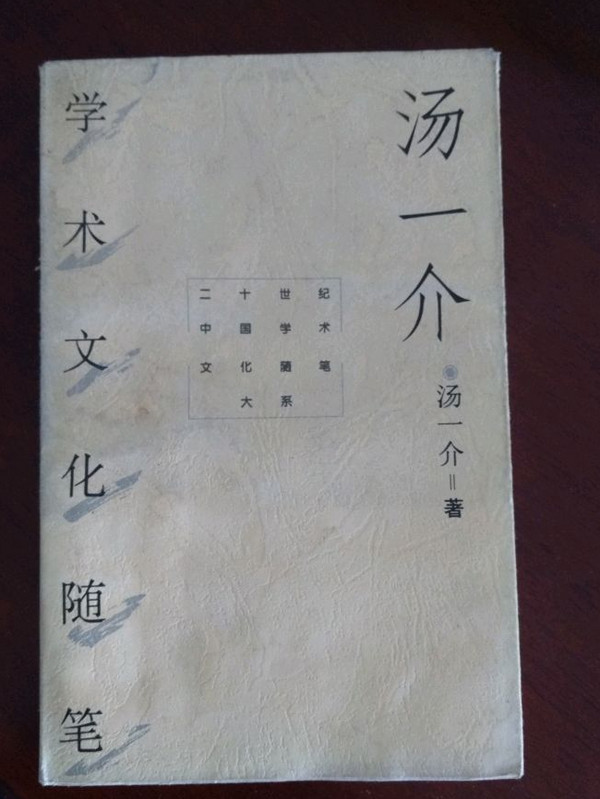 汤一介
汤一介=著
二十世纪
中国学术
文化随笔
大系
学术文化随笔